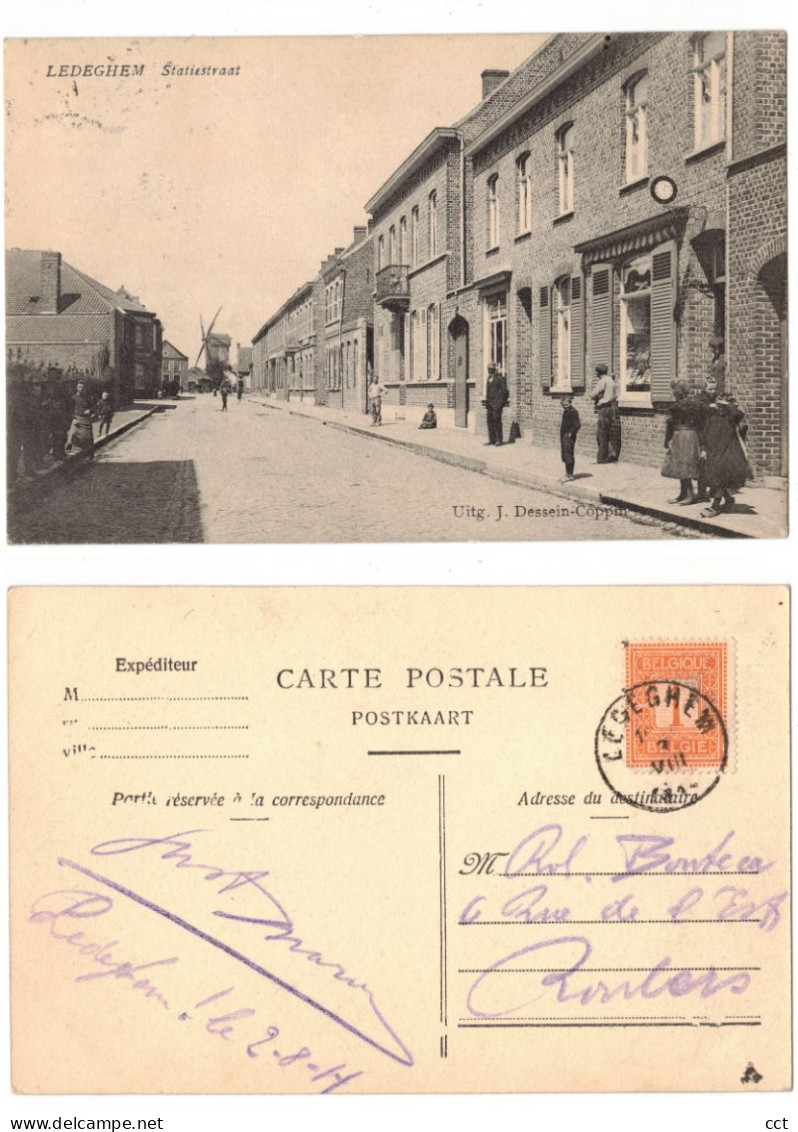 LEDEGHEM Statiestraat
Uitg. J. Dessein-Coppin
Expéditeur
CARTE POSTALE
POSTKAART
M
ville
Partie réservée à la correspondance
Adresse du destinataire
BELGIQUE
1
BELGIË
LEDEGHEM
VIII
M Rol.
6 Rue de l'Est
Roulers
Ledeghem! le 2-8-14
delcampe.net
cct